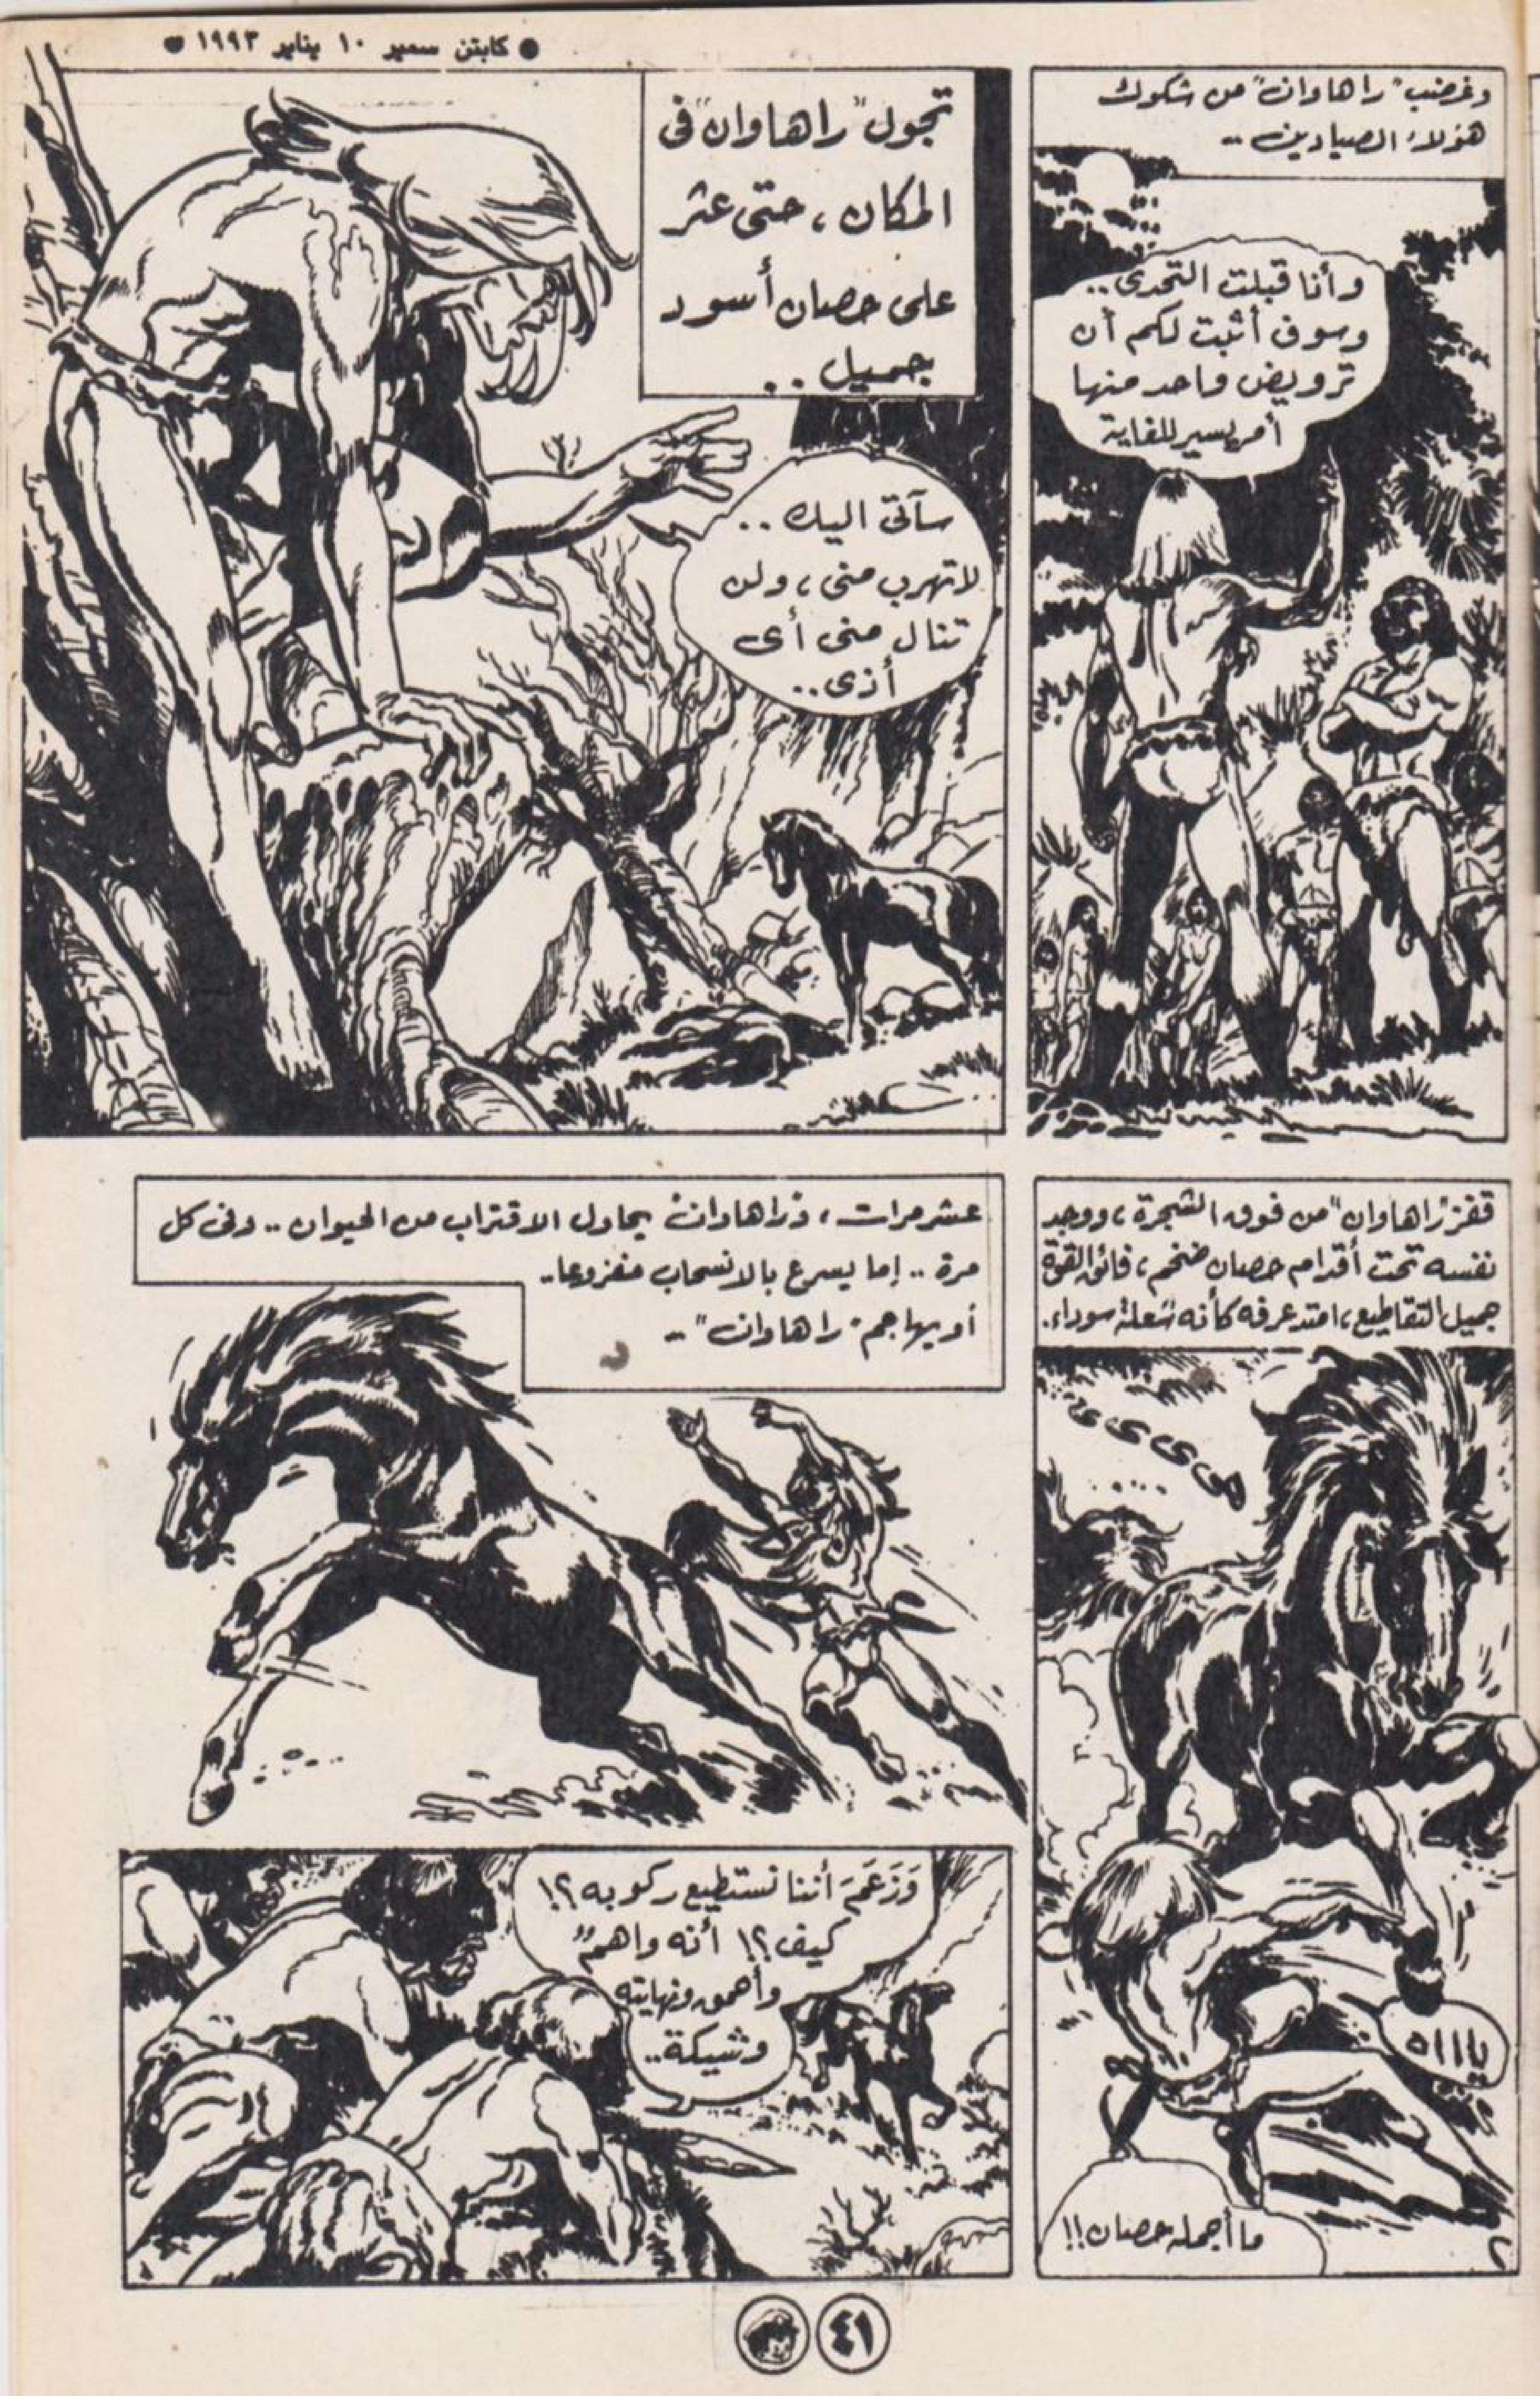 ● كابتن سمير ١٠ يناير ١٩٩٣ ●
وغضب "راهاوان" من شكوك
هؤلاء الصيادين ..
وأنا قبلت التحدى ..
وسوف أثبت لكم أن
ترويض واحد منها
أمر يسير للغاية
تجول "راهاوان" فى
المكان ، حتى عثر
على حصان أسود
جميل ..
سآتى اليك ..
لا تهرب منى ، ولن
تنال منى أى
أذى ..
قفز "راهاوان" من فوق الشجرة ، ووجد
نفسه تحت أقدام حصان ضخم ، فائق القوة
جميل التقاطيع ، امتد عرفه كأنه شعلة سوداء.
هى ى ى ى
....
ياااه
ما أجمله حصان !!
٢
عشر مرات ، و"راهاوان" يحاول الاقتراب من الحيوان .. وفى كل
مرة .. إما يسرع بالانسحاب مفزوعا ..
أو يهاجم "راهاوان" ..
وَزَعَمَ أننا نستطيع ركوبه ؟!
كيف ؟! أنه واهمٌ
وأحمق ونهايته
وشيكة ..
٤١